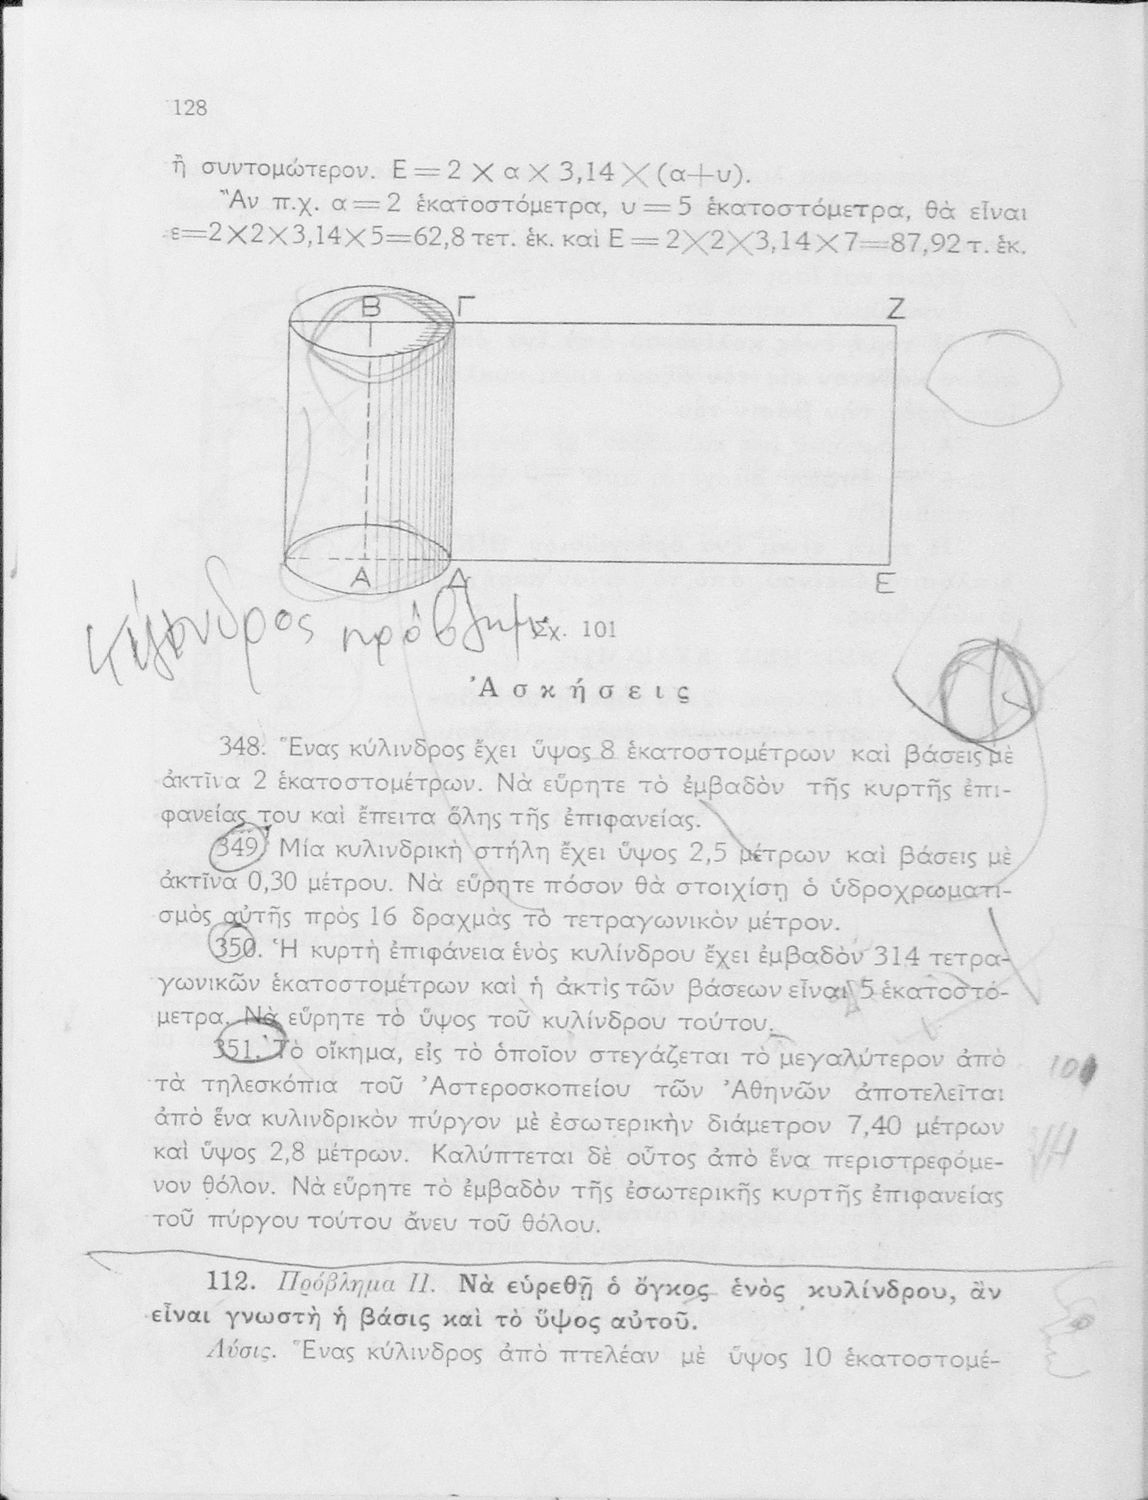 128
ἢ συντομώτερον. Ε = 2 × α × 3,14 × (α+υ).
Ἂν π.χ. α = 2 ἑκατοστόμετρα, υ = 5 ἑκατοστόμετρα, θὰ εἶναι
ε=2×2×3,14×5=62,8 τετ. ἑκ. καὶ Ε = 2×2×3,14×7=87,92 τ. ἑκ.
Β Γ Ζ
Α Δ Ε
κύλινδρος πρόβλημα
Σχ. 101
Ἀσκήσεις
348. Ἕνας κύλινδρος ἔχει ὕψος 8 ἑκατοστομέτρων καὶ βάσεις μὲ
ἀκτῖνα 2 ἑκατοστομέτρων. Νὰ εὕρητε τὸ ἐμβαδὸν τῆς κυρτῆς ἐπι-
φανείας του καὶ ἔπειτα ὅλης τῆς ἐπιφανείας.
349. Μία κυλινδρικὴ στήλη ἔχει ὕψος 2,5 μέτρων καὶ βάσεις μὲ
ἀκτῖνα 0,30 μέτρου. Νὰ εὕρητε πόσον θὰ στοιχίσῃ ὁ ὑδροχρωματι-
σμὸς αὐτῆς πρὸς 16 δραχμὰς τὸ τετραγωνικὸν μέτρον.
350. Ἡ κυρτὴ ἐπιφάνεια ἑνὸς κυλίνδρου ἔχει ἐμβαδὸν 314 τετρα-
γωνικῶν ἑκατοστομέτρων καὶ ἡ ἀκτὶς τῶν βάσεων εἶναι 5 ἑκατοστό-
μετρα. Νὰ εὕρητε τὸ ὕψος τοῦ κυλίνδρου τούτου.
351. Τὸ οἴκημα, εἰς τὸ ὁποῖον στεγάζεται τὸ μεγαλύτερον ἀπὸ
τὰ τηλεσκόπια τοῦ Ἀστεροσκοπείου τῶν Ἀθηνῶν ἀποτελεῖται
ἀπὸ ἕνα κυλινδρικὸν πύργον μὲ ἐσωτερικὴν διάμετρον 7,40 μέτρων
καὶ ὕψος 2,8 μέτρων. Καλύπτεται δὲ οὗτος ἀπὸ ἕνα περιστρεφόμε-
νον θόλον. Νὰ εὕρητε τὸ ἐμβαδὸν τῆς ἐσωτερικῆς κυρτῆς ἐπιφανείας
τοῦ πύργου τούτου ἄνευ τοῦ θόλου.
112. Πρόβλημα ΙΙ. Νὰ εὑρεθῇ ὁ ὄγκος ἑνὸς κυλίνδρου, ἂν
εἶναι γνωστὴ ἡ βάσις καὶ τὸ ὕψος αὐτοῦ.
Λύσις. Ἕνας κύλινδρος ἀπὸ πτελέαν μὲ ὕψος 10 ἑκατοστομέ-